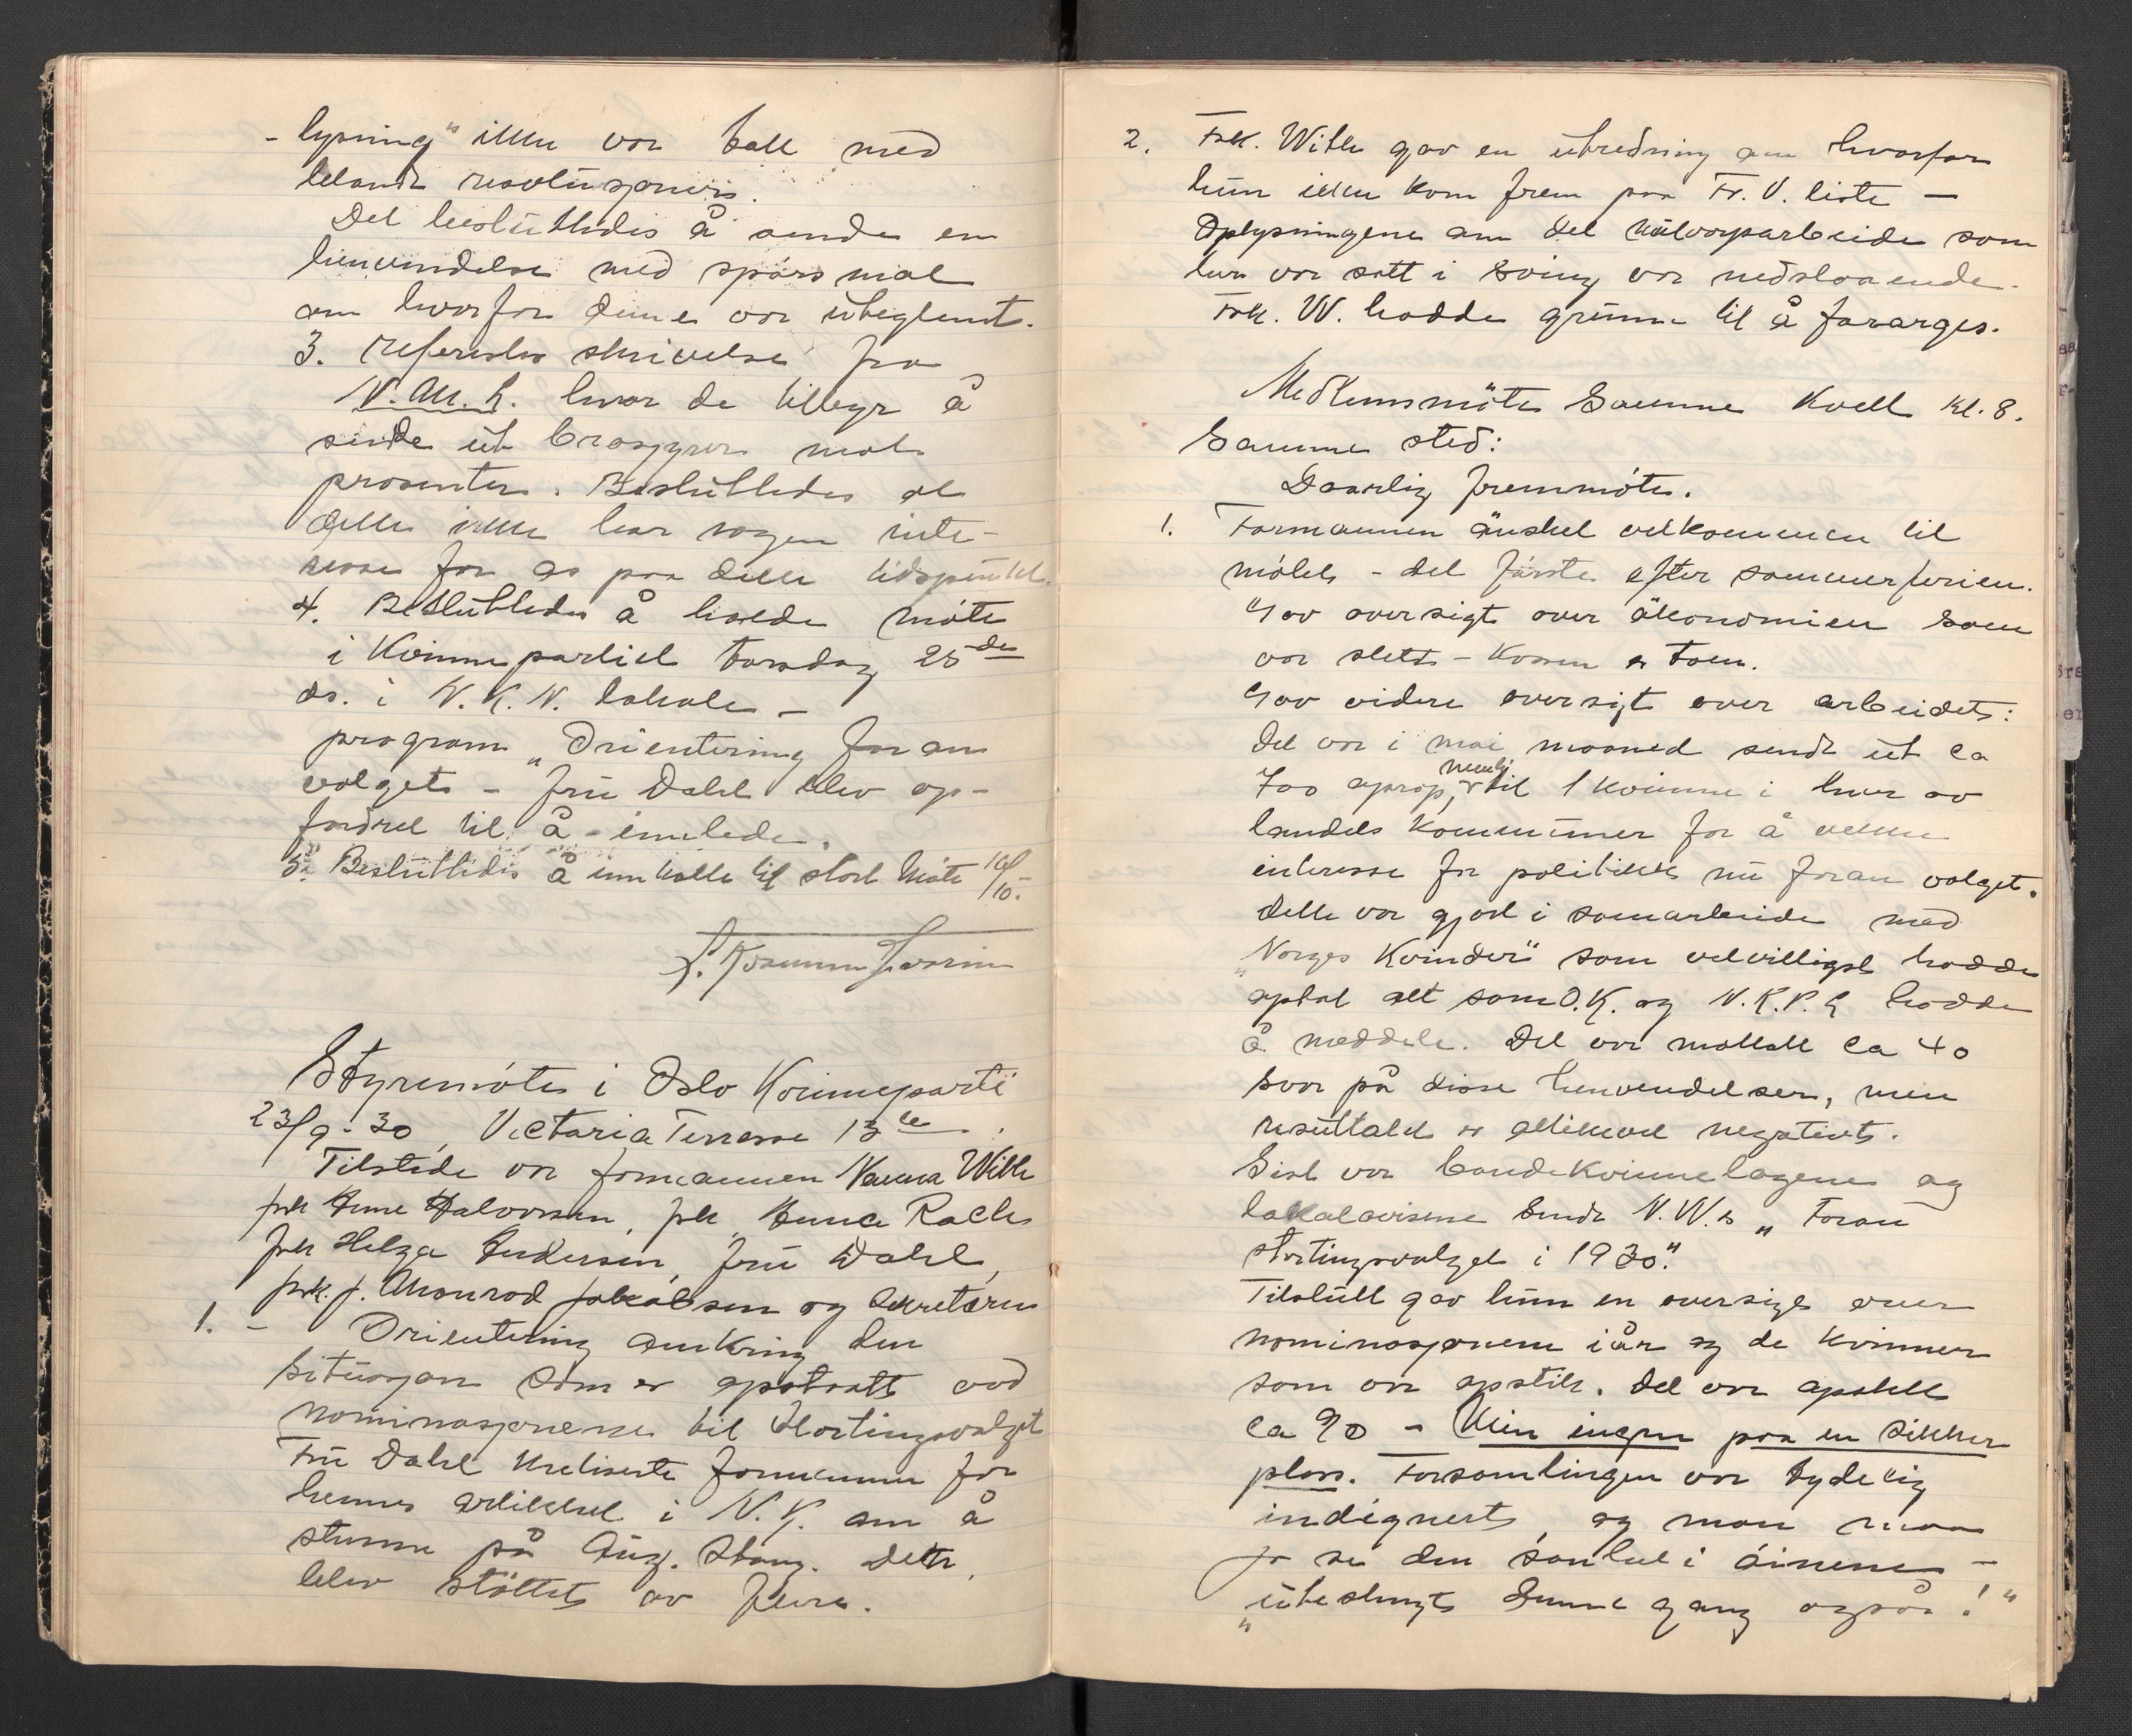 - lysning" ikke var tatt med
blandt resolusjoner.
Det besluttedes å sende en
henvendelse med spørsmal
om hvorfor denne var uteglemt.
3. Refereres skrivelse fra
N. M. h. hvor de tilbyr å
sende ut brosjyrer mot
prosenter. Besluttedes at
dette ikke har nogen inte-
resse for os paa dette tidspunkt.
4. Besluttedes å holde møte
i Kvinnepartiet torsdag 25de
ds. i N. K. N. lokale -
program "Orientering foran
valget" - fru Dahl blev op-
fordret til å innlede.
5. Besluttedes å innkalle til stort møte 10/10.
Styremøte i Oslo Kvinneparti
23/9-30, Victoria Terrasse 13 b
Tilstede var formannen Nanna With
frk Anne Halvorsen, frk Anna
frk Helga Andersen, fru Dahl,
frk. J. Monrad Jakobsen og sekretæren
1. - Orientering omkring den
situasjon som er opstaatt ved
nominasjonene til Stortingsvalget
Fru Dahl kritiserte formannen for
hennes artikkel i N. K. om å
stemme på Aug. Stang. Dette
blev støttet av flere.
2. Frk. With gav en utredning om hvorfor
hun ikke kom frem paa Fr. V. liste -
Oplysningene om det muldvarparbeide som
her var satt i sving var nedslaaende.
Frk. W. hadde grunn til å forarges.
Medlemsmøte samme kvell kl. 8.
samme sted:
Daarlig fremmøte.
1. Formannen ønsket velkommen til
møtet - det første efter sommerferien.
Gav oversigt over økonomien som
var slett - Kassen er tom.
Gav videre oversigt over arbeidet:
Det var i mai maaned sendt ut ca
700 oprop, nemlig til 1 kvinne i hver av
landets kommuner for å vekke
interesse for politikk nu foran valget.
Dette var gjort i samarbeide med
"Norges Kvinder" som velvilligst hadde
optat alt som O.K. og N.K.P. hadde
å meddele. Det var mottatt ca 40
svar på disse henvendelser, men
resultatet er allikevel negativt.
Sist var bondekvinnelagene og
lokalavisene sendt N.W.s "Foran
stortingsvalget i 1930".
Tilslutt gav hun en oversigt over
nominasjonene iår og de kvinner
som var opstilt. Det var opstilt
ca 90 - Men ingen paa en sikker
plass. Forsamlingen var tydelig
indignert, og man maa
jo se den sanhet i øinene -
"ubeslungt denne gang også!"